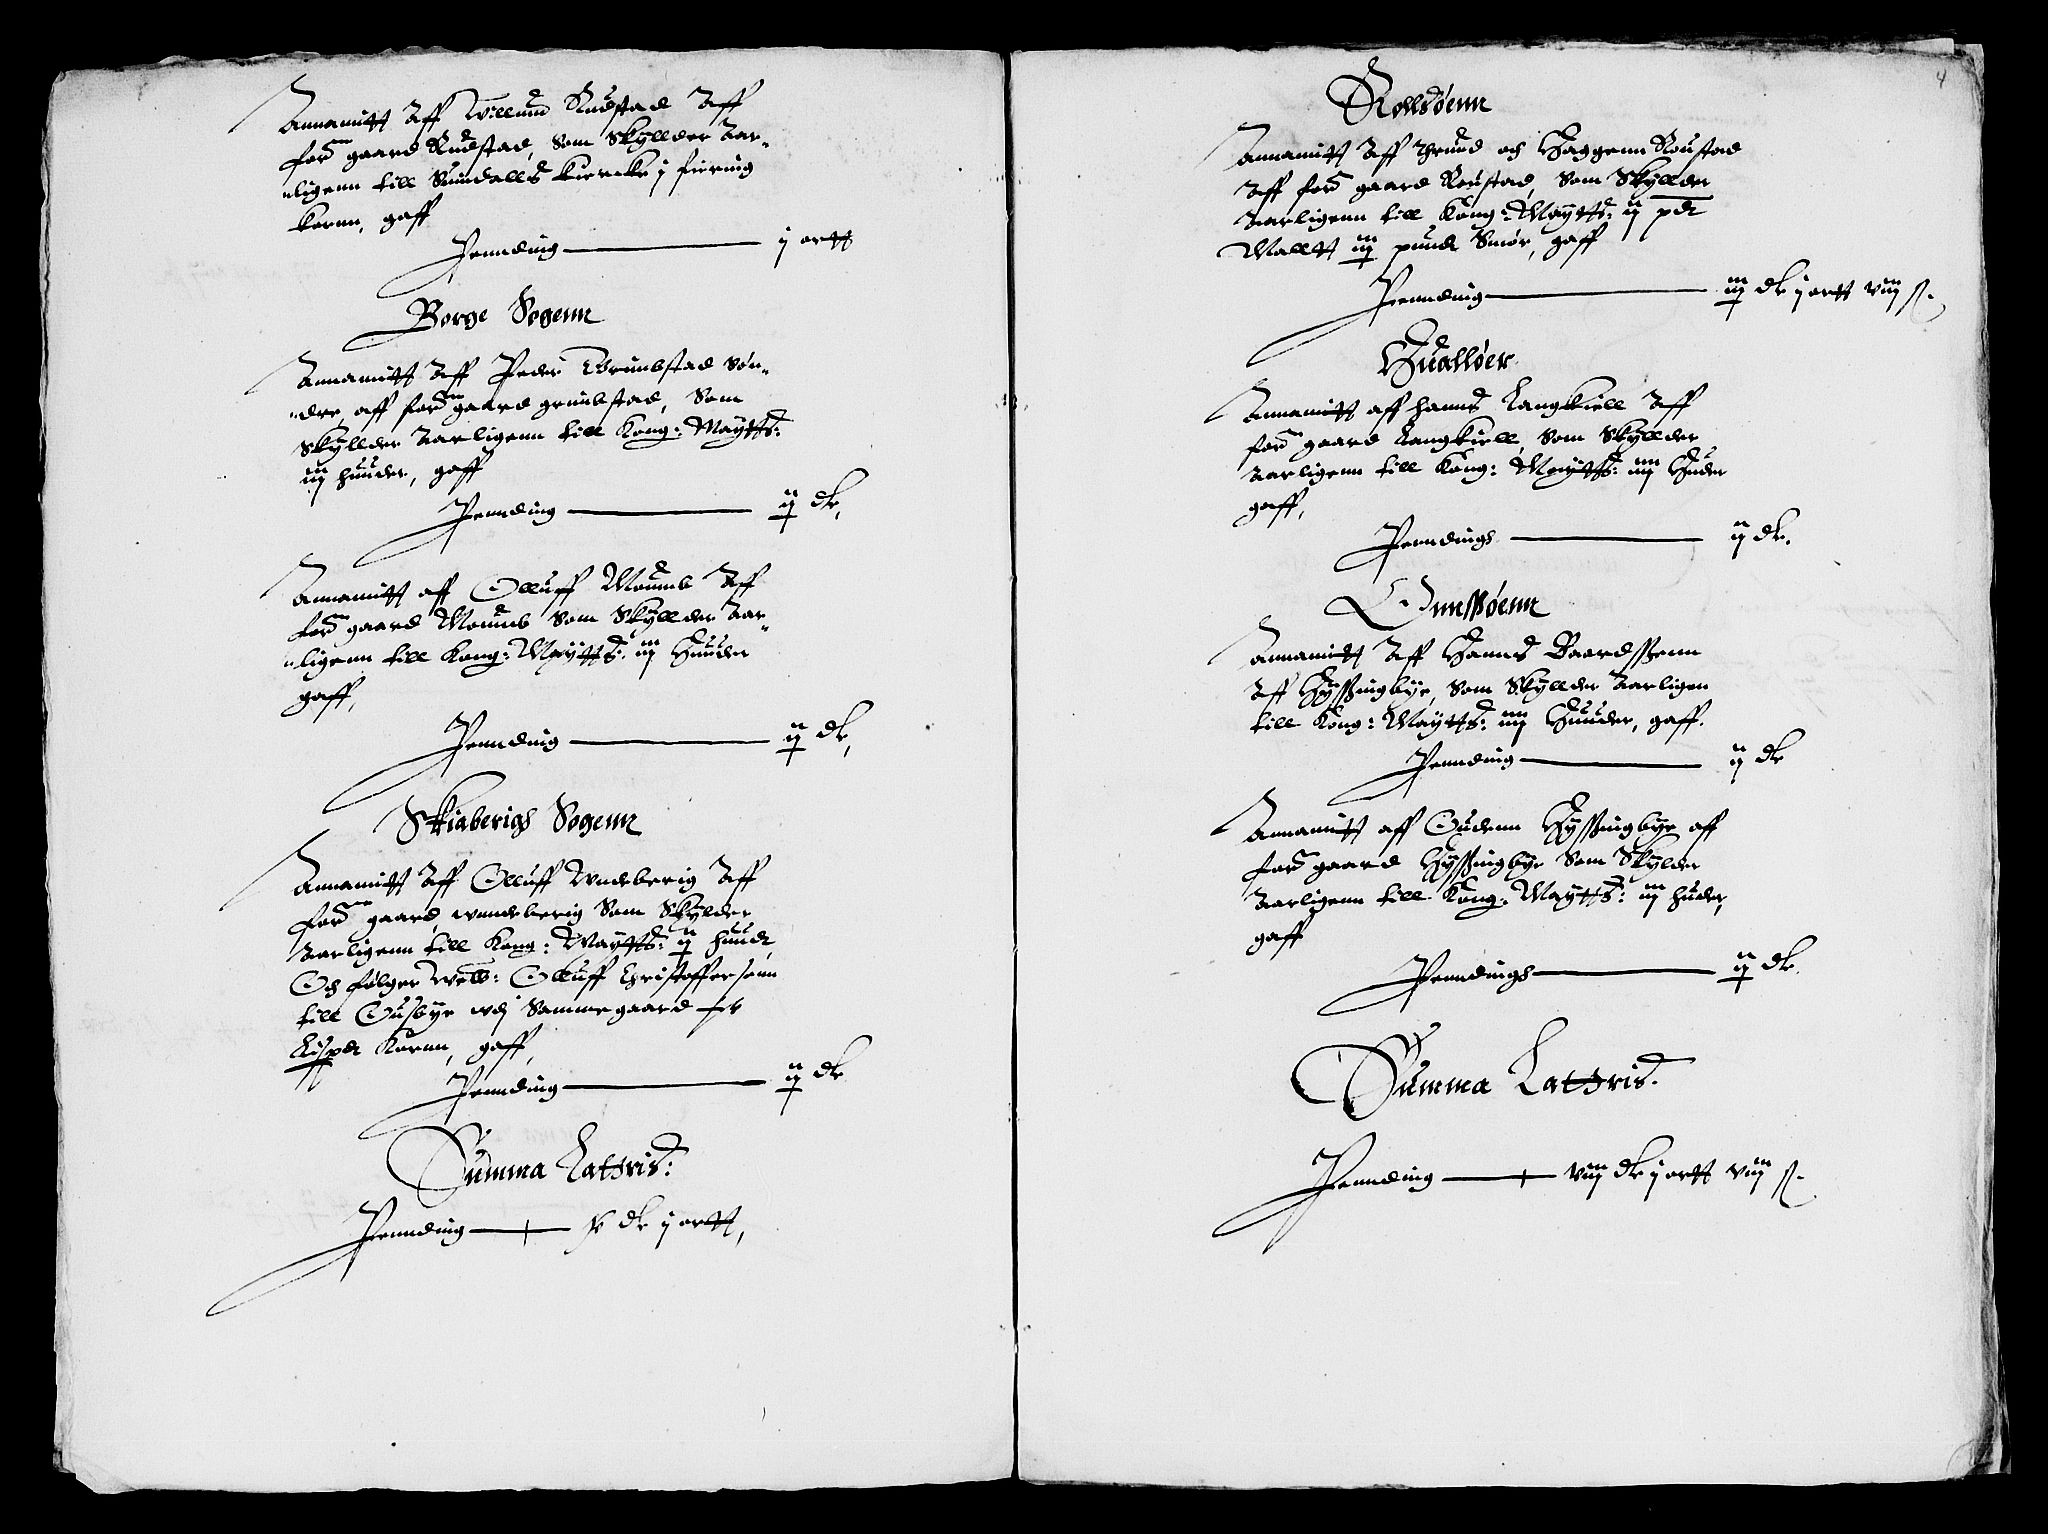 Annamitt Aff Willum Rudstad Aff
forne gaard Rudstad, Som Skyllder Aar-
ligenn till Smidalls kiercke j fiering
kornn, gaff
Pennding j ortt
Borge Sogenn
Annamitt Aff Peder Grimbstad Søn-
dre, aff forne gaard grimbstad, Som
Skyllder Aarligenn till Kong: Maytts:
iij huuder, gaff
Pennding ij dr,
Annamitt aff Olluff Moumb Aff
forne gaard Moumb Som Skyllder Aar-
ligenn till Kong: Maytts: iij Huuder
gaff,
Pennding ij dr,
Skiaberigh Sogenn
Annamitt Aff Olluff Wndeberig Aff
forne gaard, wnndeberig Som Skylder
Aarligenn till Kong: Maytts: ij huudr
Och følger Welb: Olluff Christoffersønn
till Ousbye wdj Samme gaard
Lispdt Kornn, gaff,
Pennding ij dr
Summa Lattris:
Pennding vj dr j ortt,
4
Rollsøenn
Annamitt Aff Trund och Haggenn Roustad
Aff forne gaard Roustad, Som Skyllder
Aarligenn till Kong: Maytts: ij pdt
Malltt iij pundt Smør, gaff
Pennding iij dr j ortt viij s.
Hualløer
Annamitt aff hanns Langkiell Aff
forne gaard Langkiell, Som Skyllder
Aarligenn till Kong: Maytts: iiij Huder
gaff,
Penndingh ij dr.
Onnssøenn
Annamitt Aff Hanns Baardssenn
Aff Hyssingbye, Som Skyllder Aarligen
till Kong: Maytts: iiij Huuder, gaff.
Pennding ij dr
Annamitt aff Oudenn Hyssingbye aff
forne gaard Hyssingbye Som Skylder
Aarligenn till Kong: Maytts: iij huder,
gaff
Penndingh ij dr.
Summa Lattris.
Pennding viiij dr j ortt viij s.